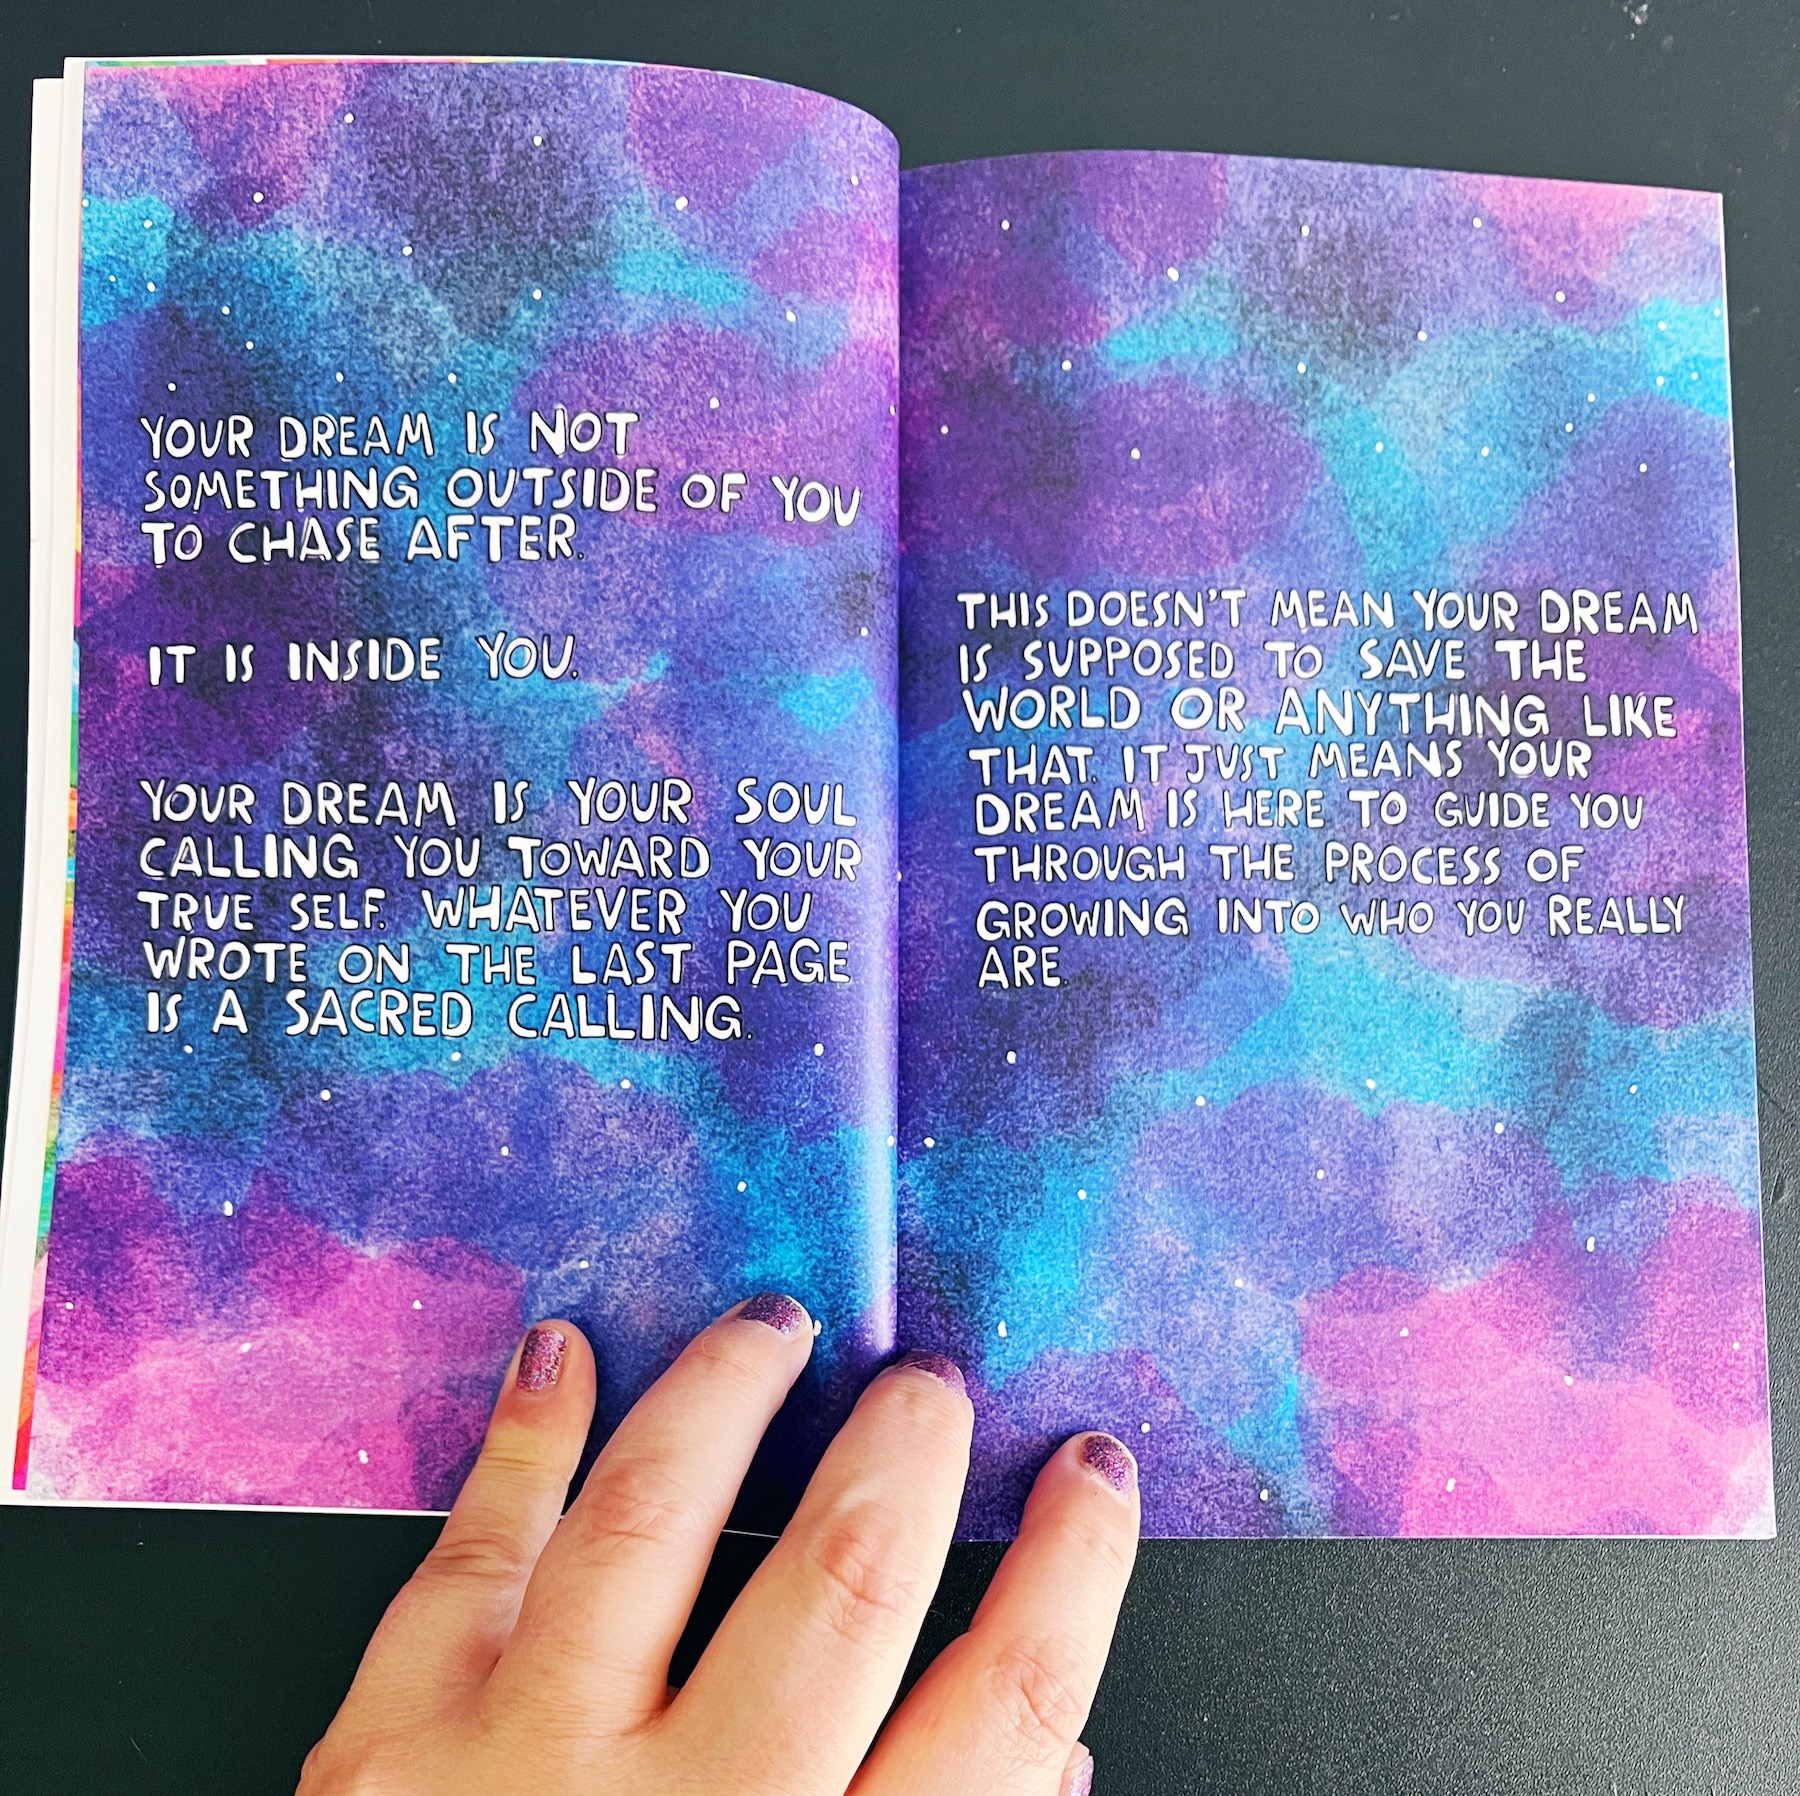 YOUR DREAM IS NOT
SOMETHING OUTSIDE OF YOU
TO CHASE AFTER.
IT IS INSIDE YOU.
YOUR DREAM IS YOUR SOUL
CALLING YOU TOWARD YOUR
TRUE SELF. WHATEVER YOU
WROTE ON THE LAST PAGE
IS A SACRED CALLING.
THIS DOESN'T MEAN YOUR DREAM
IS SUPPOSED TO SAVE THE
WORLD OR ANYTHING LIKE
THAT. IT JUST MEANS YOUR
DREAM IS HERE TO GUIDE YOU
THROUGH THE PROCESS OF
GROWING INTO WHO YOU REALLY
ARE.